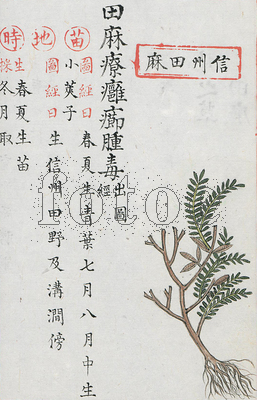 信州田麻
田麻療癰癤腫毒出圖經
苗圖經曰春夏生青葉七月八月中生
小莢子
地圖經曰生信州田野及溝澗傍
時生春夏生苗
採冬月取
foto